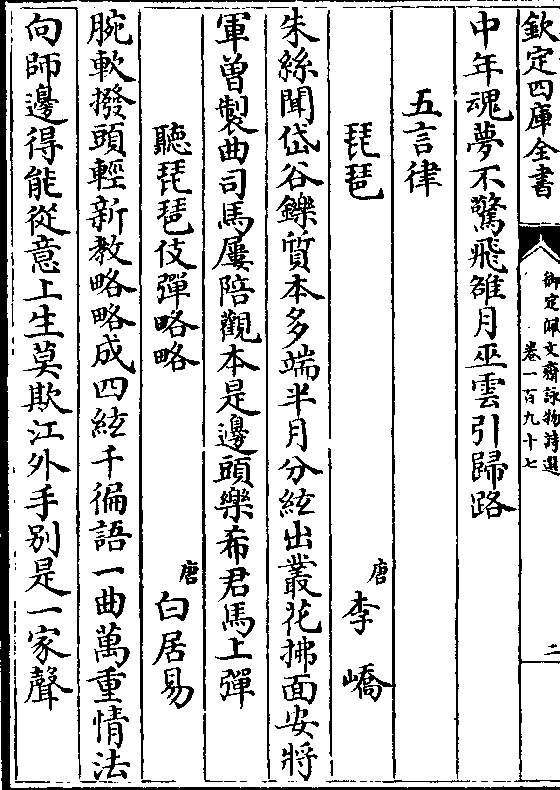 欽定四庫全書
御定佩文齋詠物詩選
卷一百九十七
二
中年魂夢不驚飛雊月巫雲引歸路
五言律
琵琶
唐李嶠
朱絲聞岱谷鑠質本多端半月分絃出叢花拂面安將
軍曽製曲司馬屢陪觀本是邊頭樂希君馬上彈
聽琵琶伎彈略略
唐白居易
腕軟撥頭輕新教略略成四絃千徧語一曲萬重情法
向師邊得能從意上生莫欺江外手別是一家聲